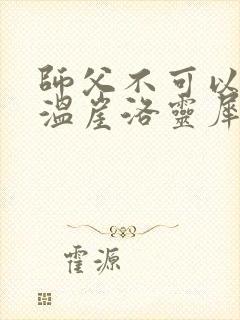 師父不可以
溫崖洛靈犀
霍源